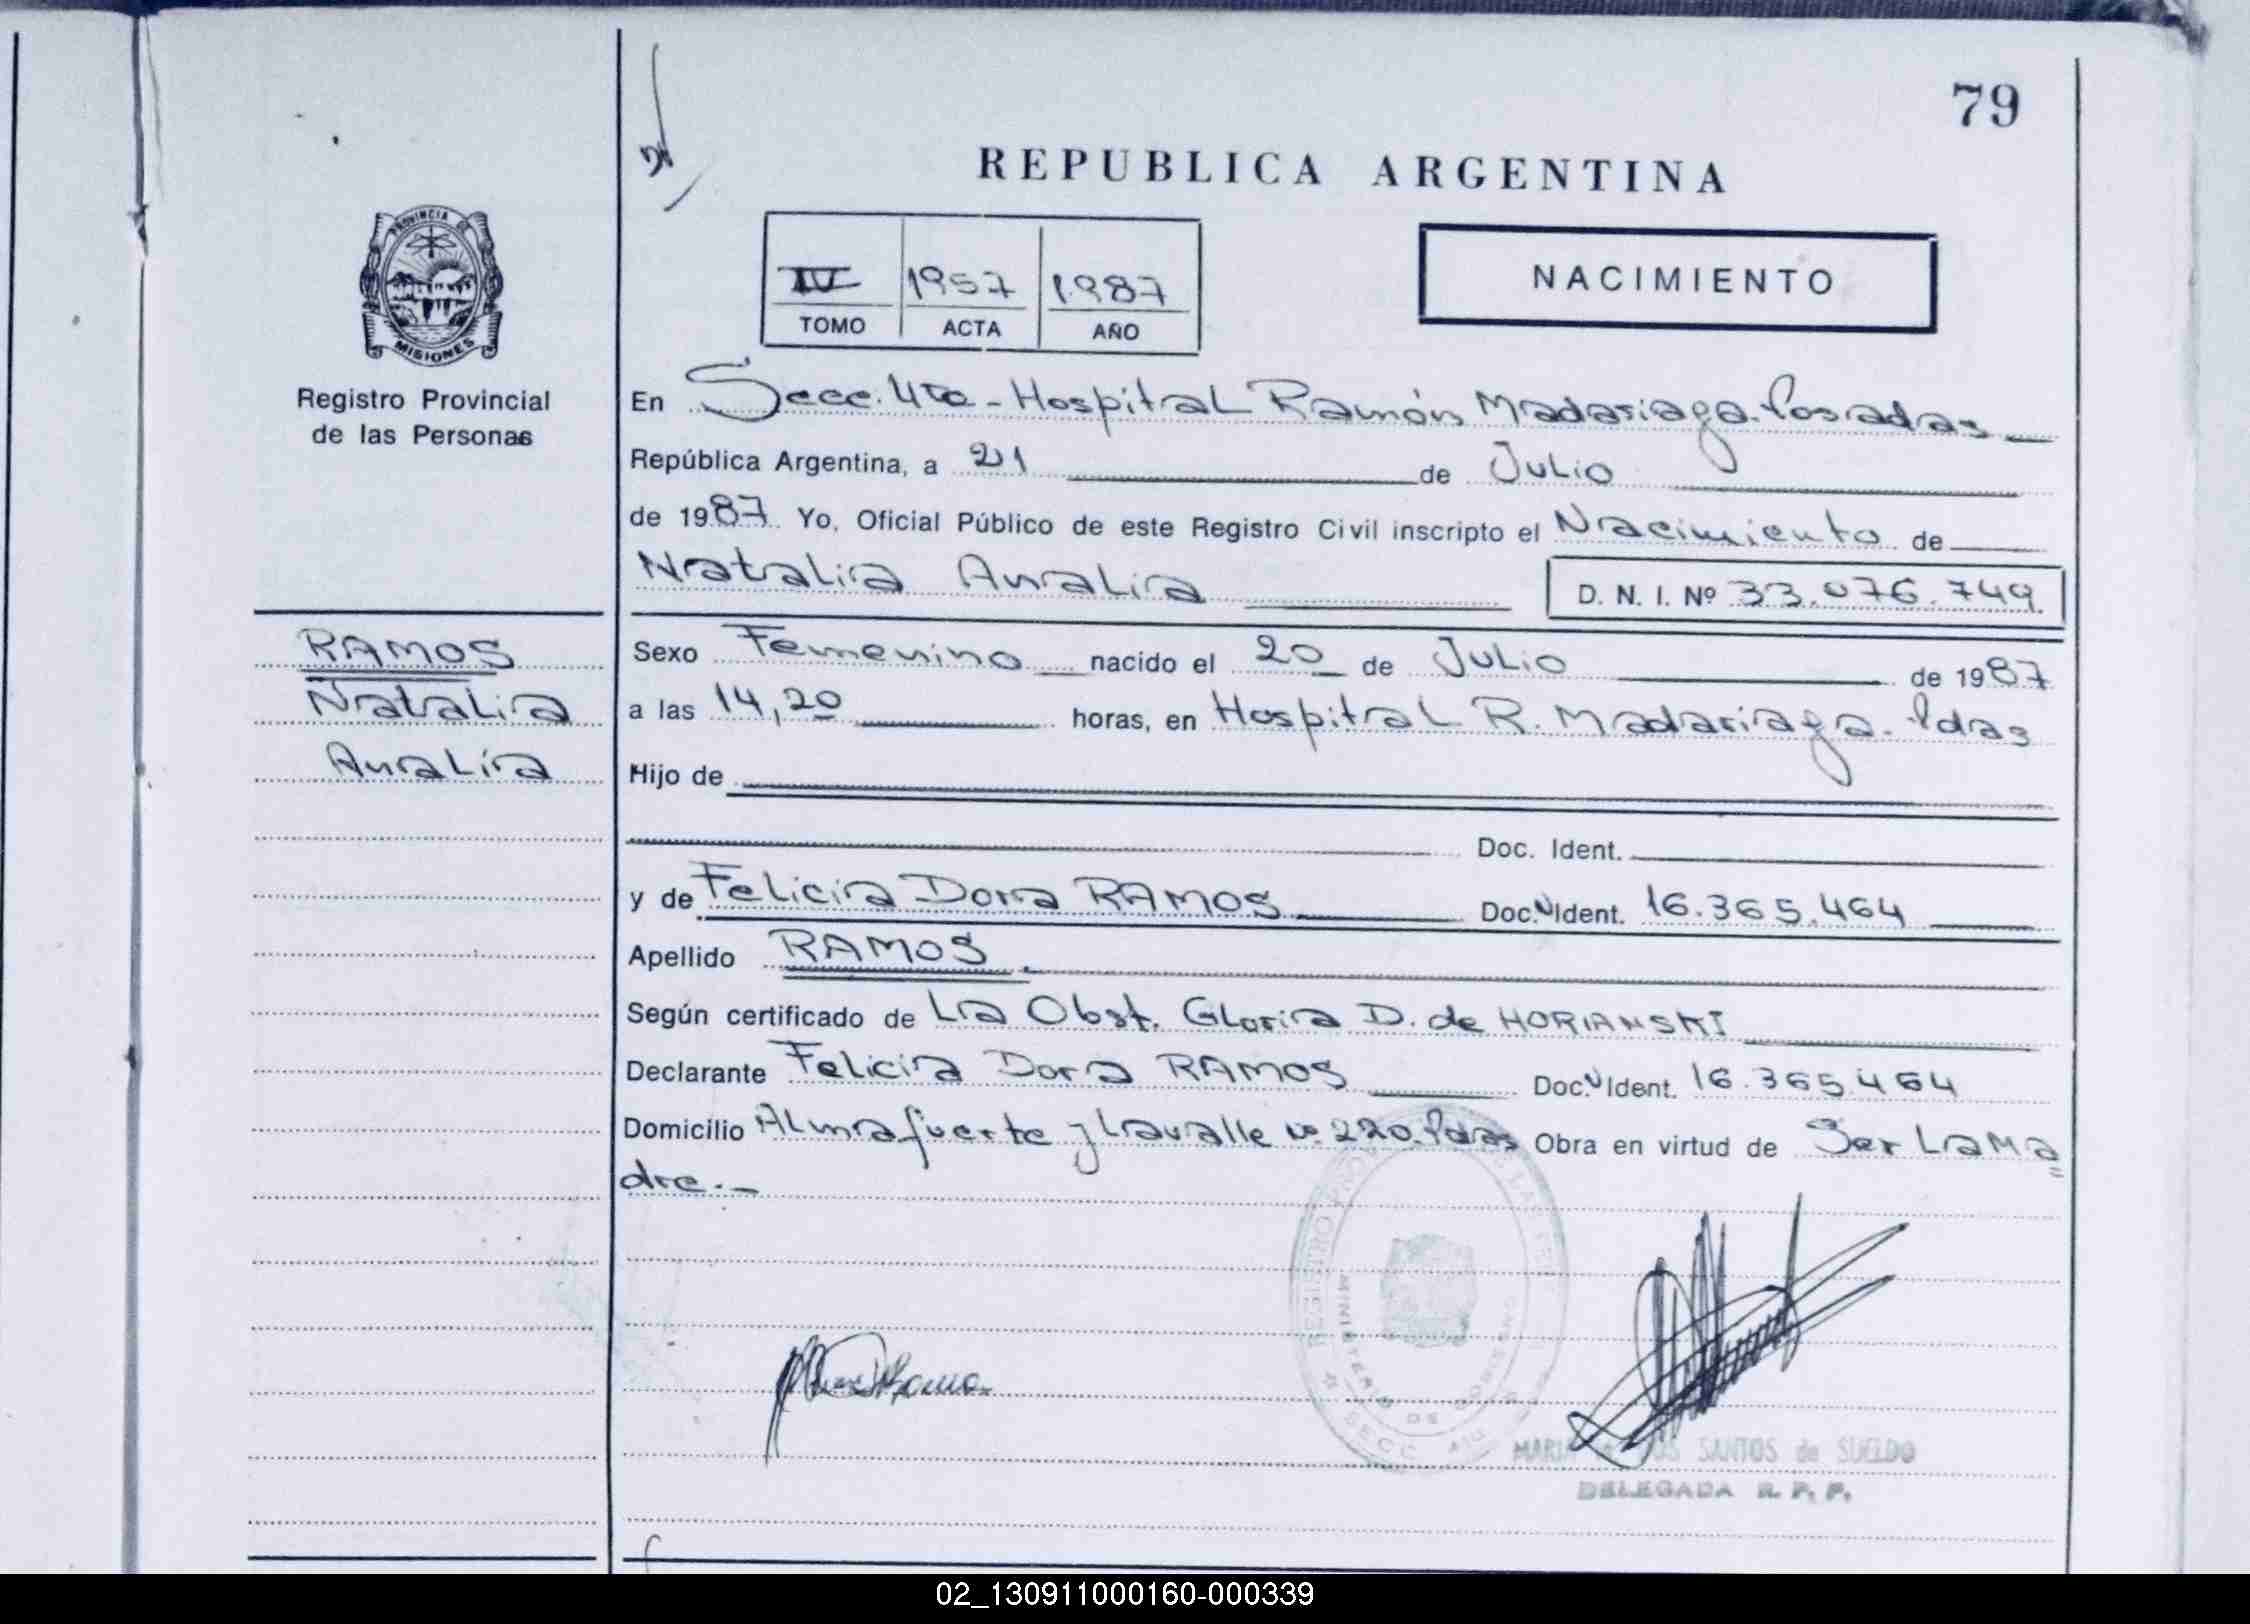 79
REPUBLICA ARGENTINA
PROVINCIA DE
MISIONES
IV 1957 1987
TOMO ACTA AÑO
NACIMIENTO
Registro Provincial
de las Personas
En Secc. 4ta - Hospital Ramón Madariaga. Posadas
República Argentina, a 21 de Julio
de 1987 Yo, Oficial Público de este Registro Civil inscripto el Nacimiento de
Natalia Analia D. N. I. Nº 33.076.749
RAMOS
Natalia
Analía
Sexo Femenino nacido el 20 de Julio de 1987
a las 14,20 horas, en Hospital R. Madariaga. Pdas
Hijo de
Doc. Ident.
y de Felicia Dora RAMOS Doc. Ident. 16.365.464
Apellido RAMOS
Según certificado de La Obst. Gloria D. de HORIANSKI
Declarante Felicia Dora RAMOS Doc. Ident. 16.365.464
Domicilio Almafuerte y Lavalle Nº 220. Pdas Obra en virtud de Ser La Ma=
dre.-
REGISTRO LAS
MINISTERIO DE GOBIERNO
SECC.
MARIA SANTOS de SUELDO
DELEGADA R. P. P.
02_130911000160-000339